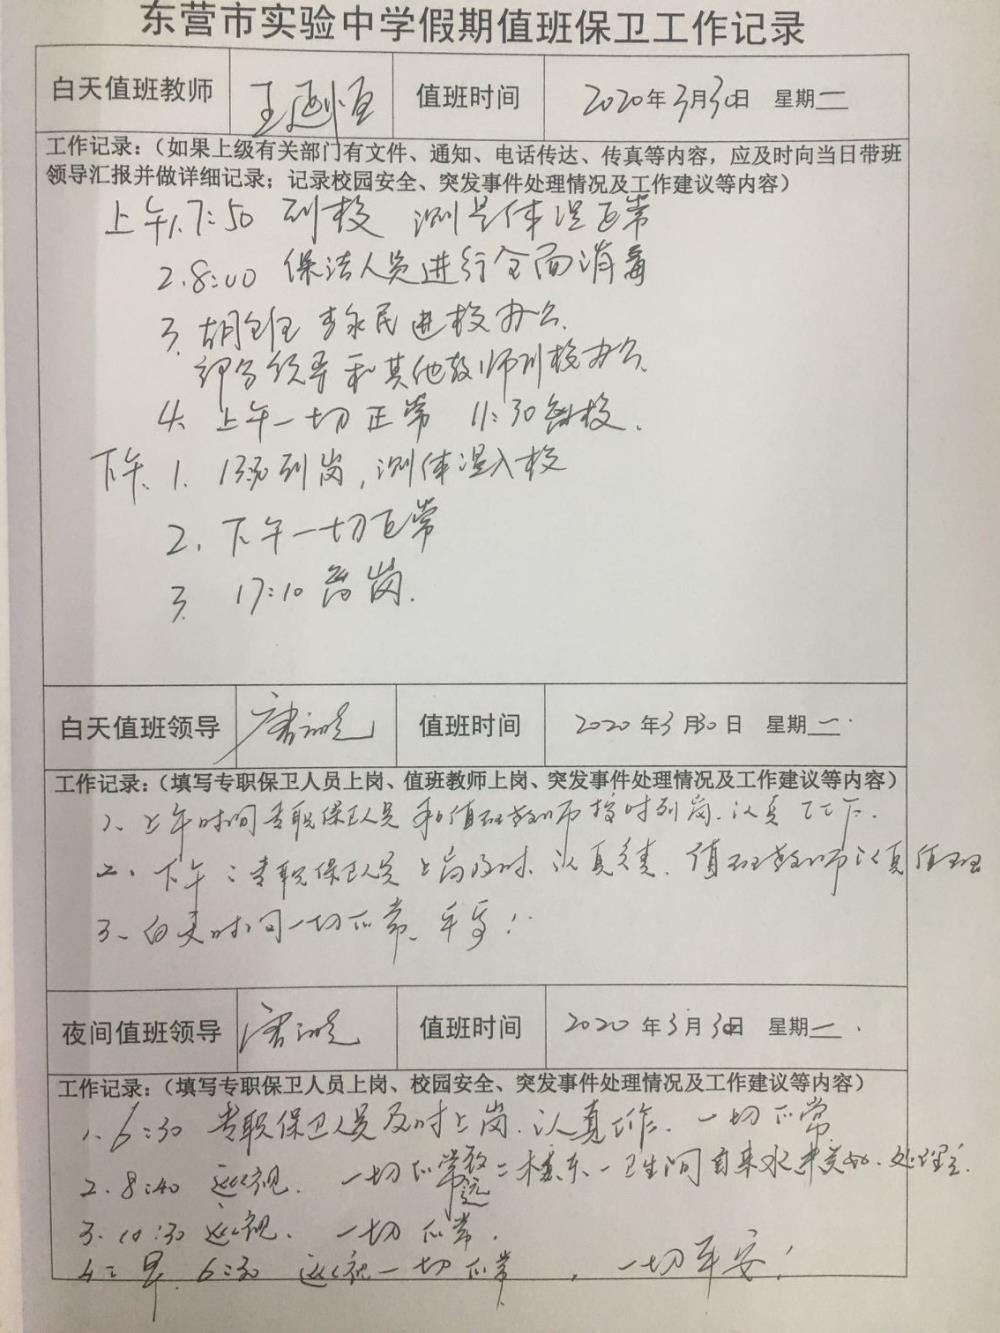 东营市实验中学假期值班保卫工作记录
白天值班教师 王 值班时间 2020年3月30日 星期二
工作记录：（如果上级有关部门有文件、通知、电话传达、传真等内容，应及时向当日带班
领导汇报并做详细记录；记录校园安全、突发事件处理情况及工作建议等内容）
上午1. 7:50 到校 测量体温正常
2. 8:00 保洁人员进行全面消毒
3. 李永民进校办公.
部分领导和其他教师到校办公.
4. 上午一切正常 11:30离校.
下午. 1. 到岗, 测体温入校
2. 下午一切正常
3. 17:10 离岗.
白天值班领导 唐 值班时间 2020年3月30日 星期一.
工作记录：（填写专职保卫人员上岗、值班教师上岗、突发事件处理情况及工作建议等内容）
1、上午时间专职保卫人员和值班教师按时到岗.认真工作.
2、下午：专职保卫人员上岗及时.认真负责.值班教师认真值班
3、白天时间一切正常、平安!
夜间值班领导 唐 值班时间 2020年3月30日 星期一.
工作记录：（填写专职保卫人员上岗、校园安全、突发事件处理情况及工作建议等内容）
1. 6:30 专职保卫人员及时上岗.认真工作. 一切正常
2. 8:40 巡视. 一切正常 二楼东一卫生间自来水未关好.处理
3. 10:30 巡视. 一切正常.
4: 早. 6:30 巡视一切正常, 一切平安!